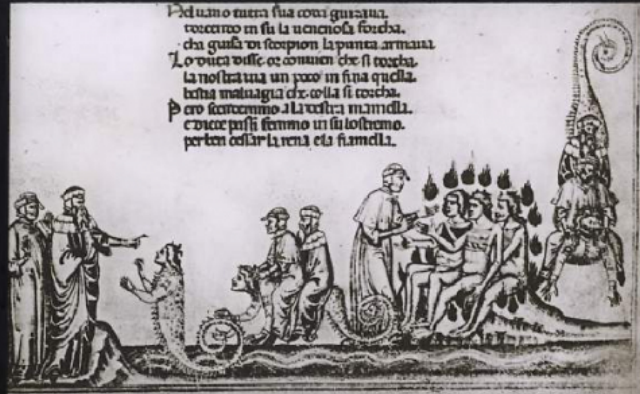 Nel uano tutta sua coda guizaua
torcendo in su la uenenosa forcha
cha guisa di scorpion la punta armaua
Lo duca disse or conuien che si torcha
la nostra uia un poco in fina quella
bestia maluagia che colla si corcha
Pero scendemmo a la destra mamella
e diece passi femmo in su lo stremo
per ben cessar la rena e la fiamella